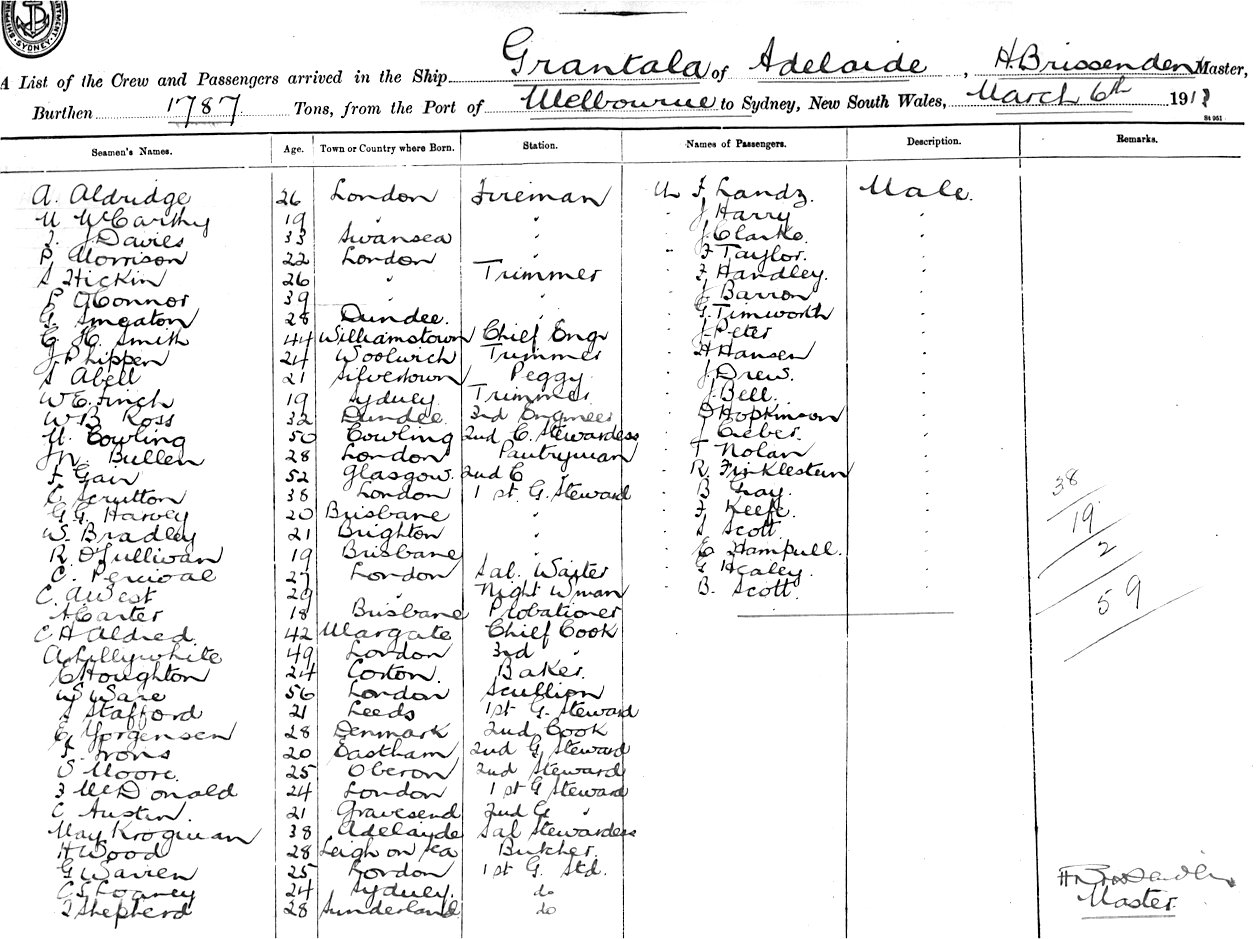 SYDNEY
A List of the Crew and Passengers arrived in the Ship Grantala of Adelaide, H Brissenden Master,
Burthen 1787 Tons, from the Port of Melbourne to Sydney, New South Wales, March 6th 191
St 951
Seamen's Names. Age. Town or Country where Born. Station. Names of Passengers. Description. Remarks.
A. Aldridge 26 London Fireman F Landz. Male.
M McCarthy 19 " " J Harry "
J. Davies 33 Swansea " J Clarke "
P. Morrison 22 London " F Taylor. "
S Hickin 26 " Trimmer F Handley. "
P OConnor 39 " " J Barron "
G. Smeaton 28 Dundee. " G. Timworth "
C. H. Smith 44 Williamstown Chief Engr J Peter "
J Phippen 24 Woolwich Trimmer H Hansen "
S Abell 21 Silvertown Peggy J Drew. "
W E. Finch 19 Sydney Trimmer J. Bell. "
W B Ross 32 Dundee 3rd Engineer D Hopkinson "
M. Cowling 50 Cowling 2nd C. Stewardess J "
Bullen 28 London Pantryman T Nolan "
F Gain 52 Glasgow. 2nd C " R. Finklestein "
C Scrutton 38 London 1st G. Steward B Gray. " 38
G. G. Harvey 20 Brisbane " F Keefe. "
W. Bradley 21 Brighton " S Scott " 19
R. O'Sullivan 19 Brisbane " E Hampull. "
C. Percival 27 London Sal. Waiter G Healey. " 2
C. A West 29 " Night Wman B. Scott "
A Carter 18 Brisbane Probationer 59
C H Aldred. 42 Margate Chief Cook
A Lillywhite 49 London 3rd "
E Houghton 24 Coston. Baker.
W S Ware 56 London Scullion
S Stafford 21 Leeds 1st G. Steward
E Yorgensen 28 Denmark 2nd Cook
F. Irons 20 Eastham 2nd G Steward
S Moore. 25 Oberon 2nd Steward
J McDonald 24 London 1st G Steward
C Austin. 21 Gravesend 2nd G "
May Krogman 38 Adelayde Sal Stewardess
H Wood 28 Leigh on Sea Butcher
G Warren 25 London 1st G. Std.
C S Looney 24 Sydney. do
J Shepherd 28 Sunderland do
Master